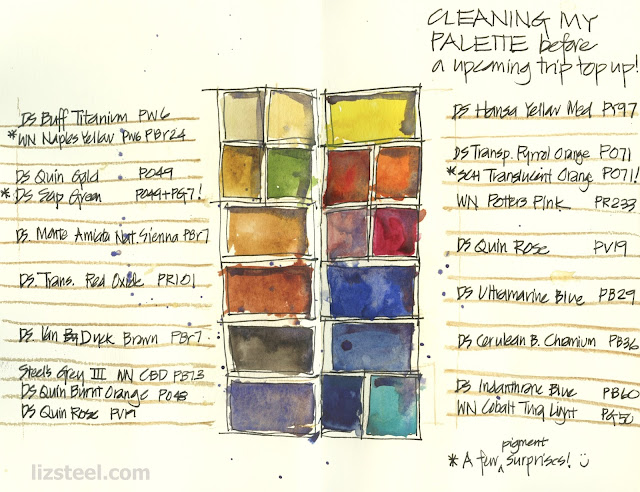 CLEANING MY
PALETTE before
a upcoming trip top up!
DS Buff Titanium PW6
*WN Naples Yellow PW6 PBr24
DS Quin Gold PO49
* DS Sap Green PO49+PG7!
DS. Monte Amiata Nat. Sienna PBr7
DS. Trans. Red Oxide PR101
DS. Van Duyck Brown PBr7
Steel's Grey III WN CBD PB73
DS Quin Burnt Orange PO48
DS Quin Rose PV19
DS Hansa Yellow Med PY97
DS Transp. Pyrrol Orange PO71
*SCH Translucent Orange PO71!
WN Potters Pink PR233
DS Quin Rose PV19
DS Ultramarine Blue PB29
DS Cerulean B. Chromium PB36
DS Indanthrone Blue PB60
WN Cobalt Turq Light PG50
* A few pigment surprises!
lizsteel.com